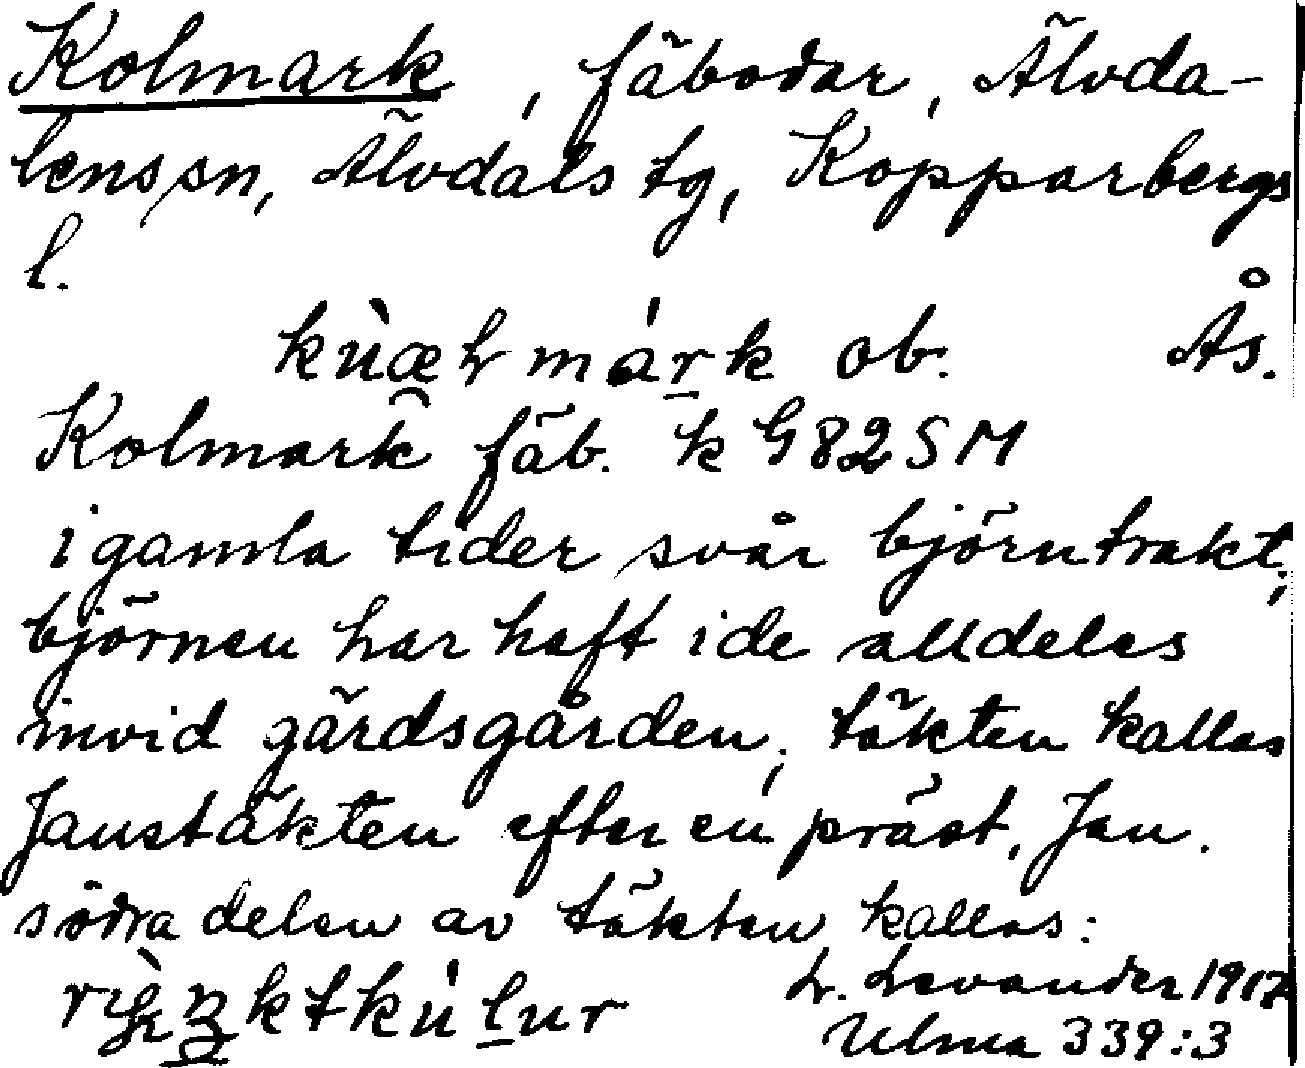 Kolmark, fäbodar, Älvda-
lens sn, Älvdals tg, Kopparbergs
l.
ob. Ås.
Kolmark fäb. k G82SM
i gamla tider svår björntrakt;
björnen har haft ide alldeles
invid gärdsgården; täkten kallas
Janstäkten efter en präst, Jan.
södra delen av täkten kallas:
L. Levander 1917
Ulma 339:3